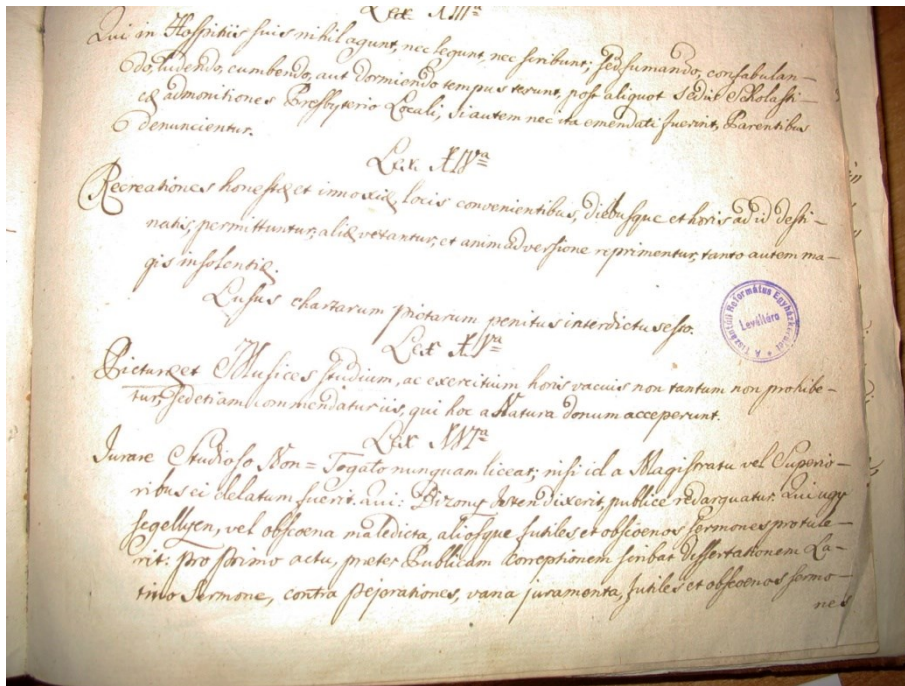 Lex XIIIa
Qui in Hospitiis suis nihil agunt, nec legunt, nec scribunt; sed fumando, confabulan-
do, ludendo, cumbendo, aut dormiendo tempus terunt, post aliquot Sedis Scholasti-
cæ admonitiones Presbyterio Locali, si autem nec ita emendati fuerint, Parentibus
denuncientur.
Lex XIVa
Recreationes honestæ et innoxiæ, locis convenientibus, diebusque et horis ad id desti-
natis, permittuntur, aliæ vetantur, et animadversione reprimentur, tanto autem ma-
gis insolentiæ.
Lusus chartarum pictarum penitus interdictus esto.
Lex XVa
Picturæ et Musices studium, ac exercitium horis vacuis non tantum non prohibe-
tur, sed etiam commendatur iis, qui hoc a Natura donum acceperunt.
Lex XVIa
Jurare Studioso Non= Togato nunquam liceat; nisi id a Magistratu vel Superio-
ribus ei delatum fuerit. qui: Bizony Isten dixerit, publice redarguatur. Qui ugy
segellyen, vel obscoena maledicta, aliosque futiles et obscoenos sermones protule-
rit: pro primo actu, præter Publicam Correptionem scribat Dissertationem La-
tino Sermone, contra pejerationes, vana juramenta, futiles et obscoenos sermo-
nes
A Tiszántúli Református Egyházkerület
Levéltára